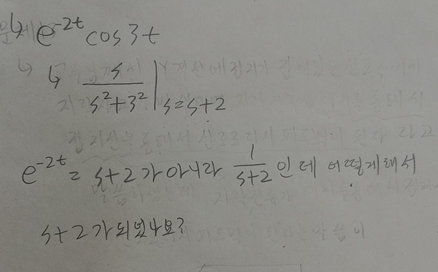 ↳ e^{-2t} cos3t
↳ \frac{s}{s^2+3^2}|_{s=s+2}
e^{-2t} = s+2가아니라 \frac{1}{s+2}인데 어떻게해서
s+2가되었나요?